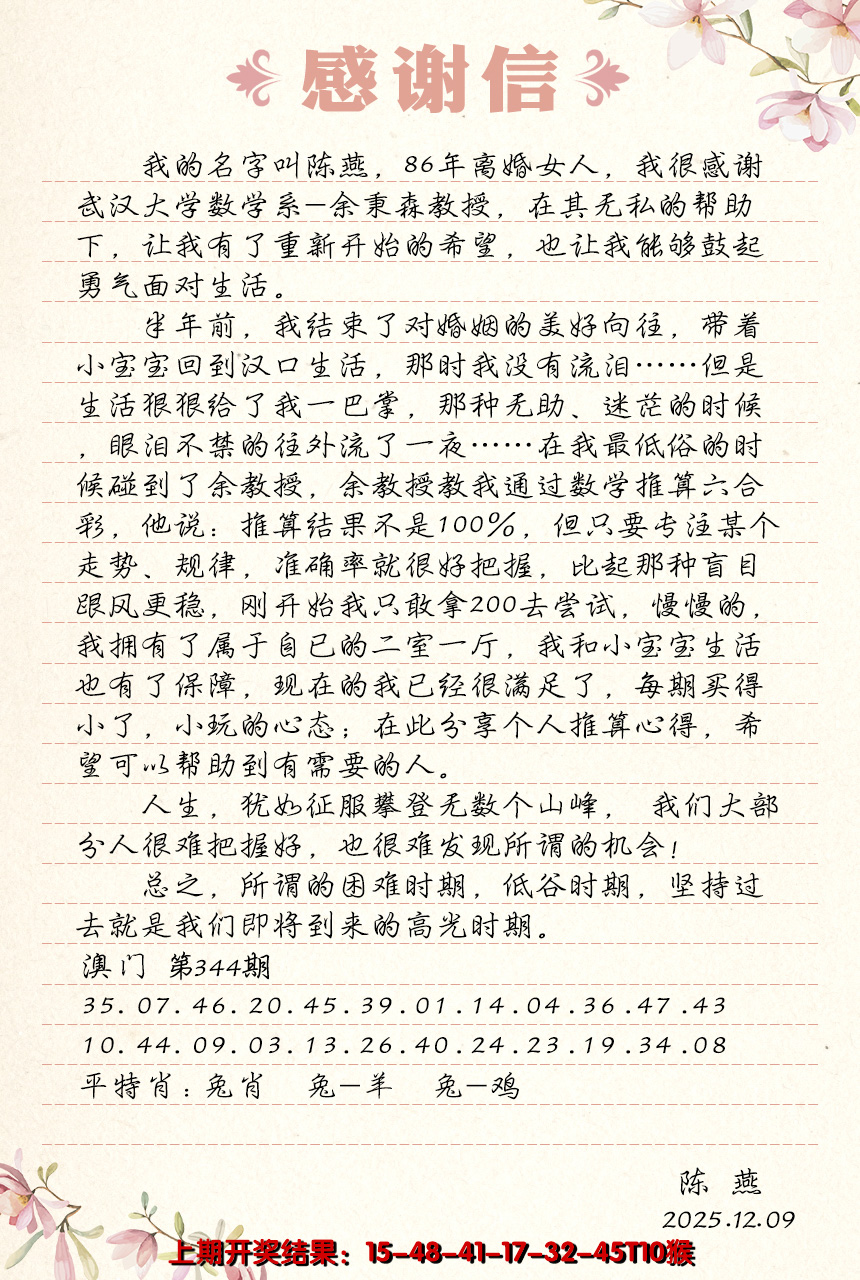 感谢信
我的名字叫陈燕，86年离婚女人，我很感谢
武汉大学数学系—余秉森教授，在其无私的帮助
下，让我有了重新开始的希望，也让我能够鼓起
勇气面对生活。
半年前，我结束了对婚姻的美好向往，带着
小宝宝回到汉口生活，那时我没有流泪……但是
生活狠狠给了我一巴掌，那种无助、迷茫的时候
，眼泪不禁的往外流了一夜……在我最低俗的时
候碰到了余教授，余教授教我通过数学推算六合
彩，他说：推算结果不是100%，但只要专注某个
走势、规律，准确率就很好把握，比起那种盲目
跟风更稳，刚开始我只敢拿200去尝试，慢慢的，
我拥有了属于自已的二室一厅，我和小宝宝生活
也有了保障，现在的我已经很满足了，每期买得
小了，小玩的心态；在此分享个人推算心得，希
望可以帮助到有需要的人。
人生，犹如征服攀登无数个山峰， 我们大部
分人很难把握好，也很难发现所谓的机会！
总之，所谓的困难时期，低谷时期，坚持过
去就是我们即将到来的高光时期。
澳门 第344期
35.07.46.20.45.39.01.14.04.36.47.43
10.44.09.03.13.26.40.24.23.19.34.08
平特肖：兔肖 兔—羊 兔—鸡
陈 燕
2025.12.09
上期开奖结果：15-48-41-17-32-45T10猴